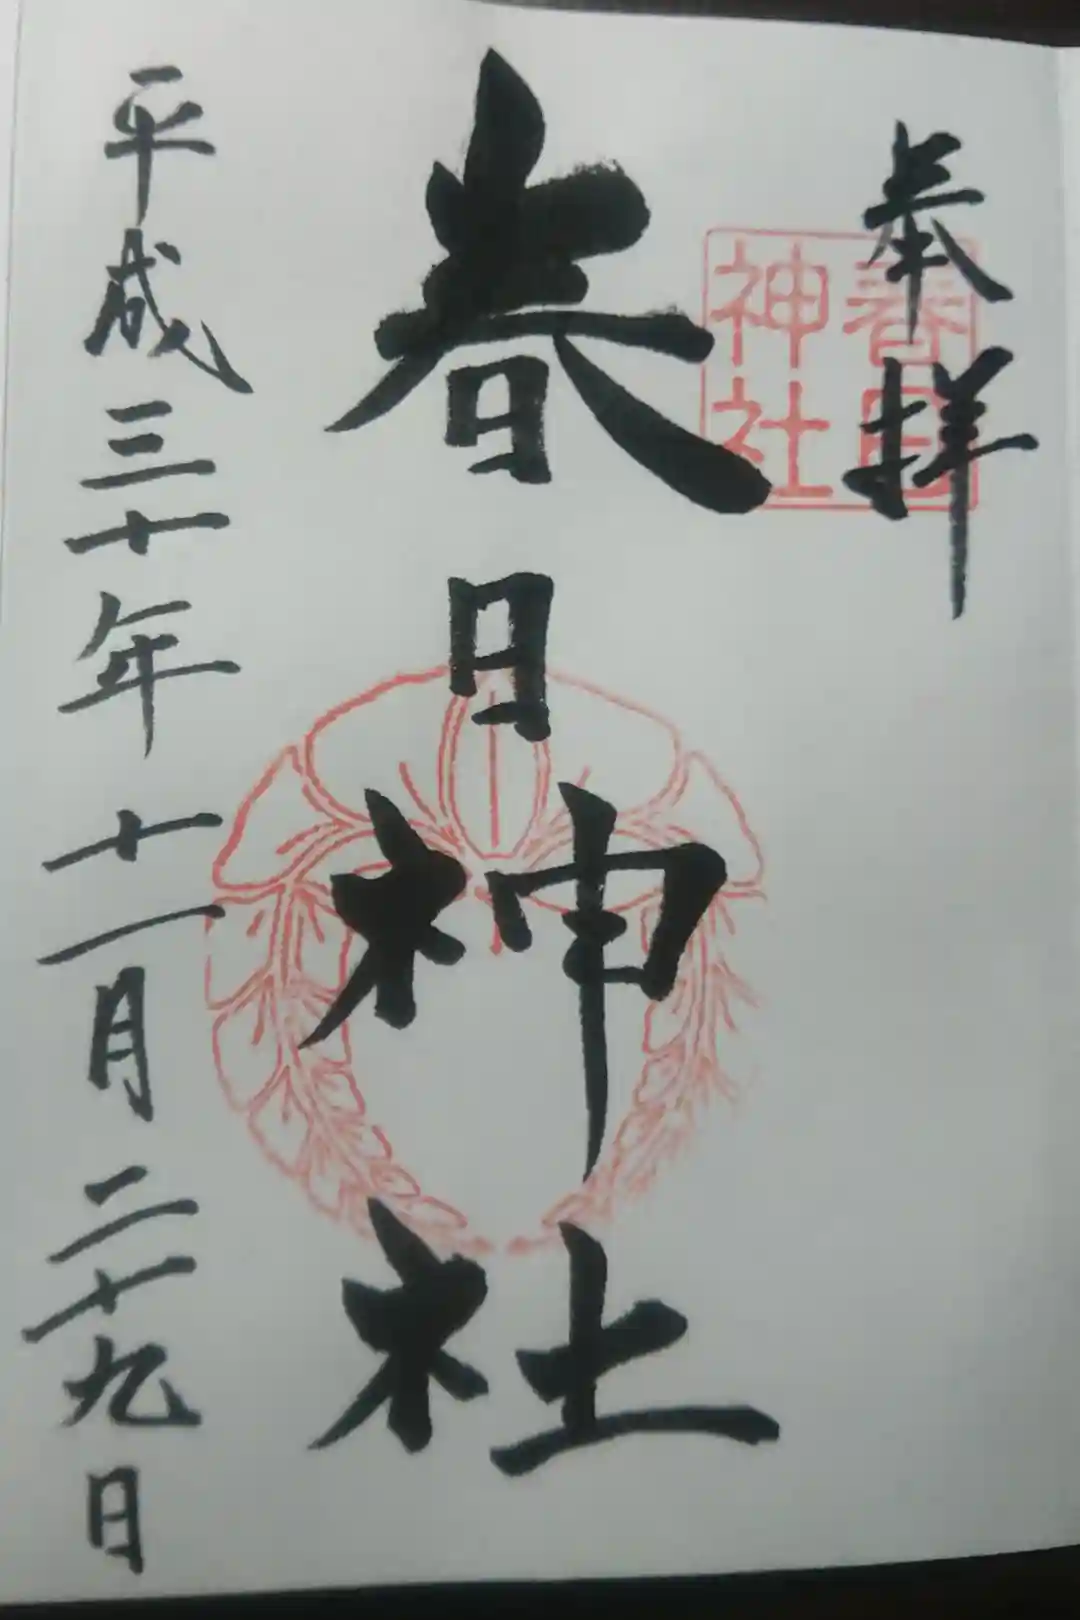 奉拝
春日神社
春日神社
平成三十年十一月二十九日